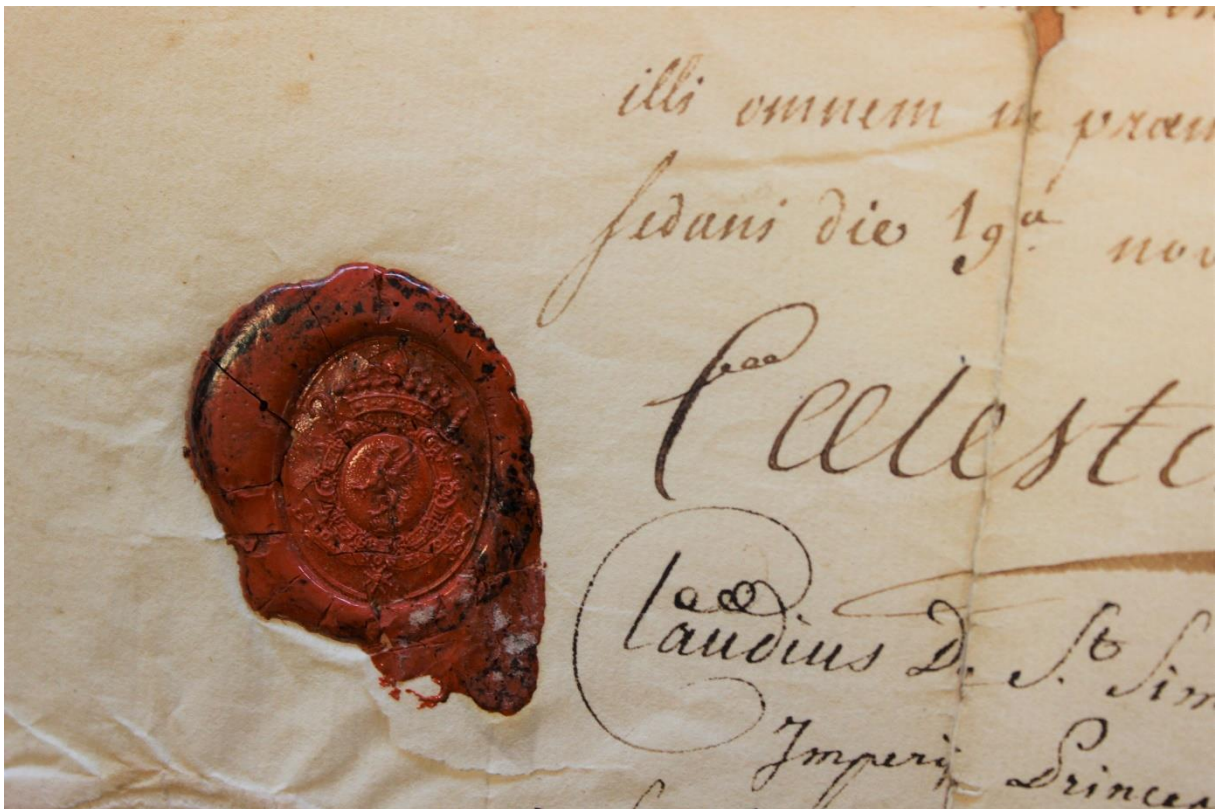 illi omnem in præm
sedani die 19ª nov
Cælest
Claudius De St. Sim
Imperij Princeps